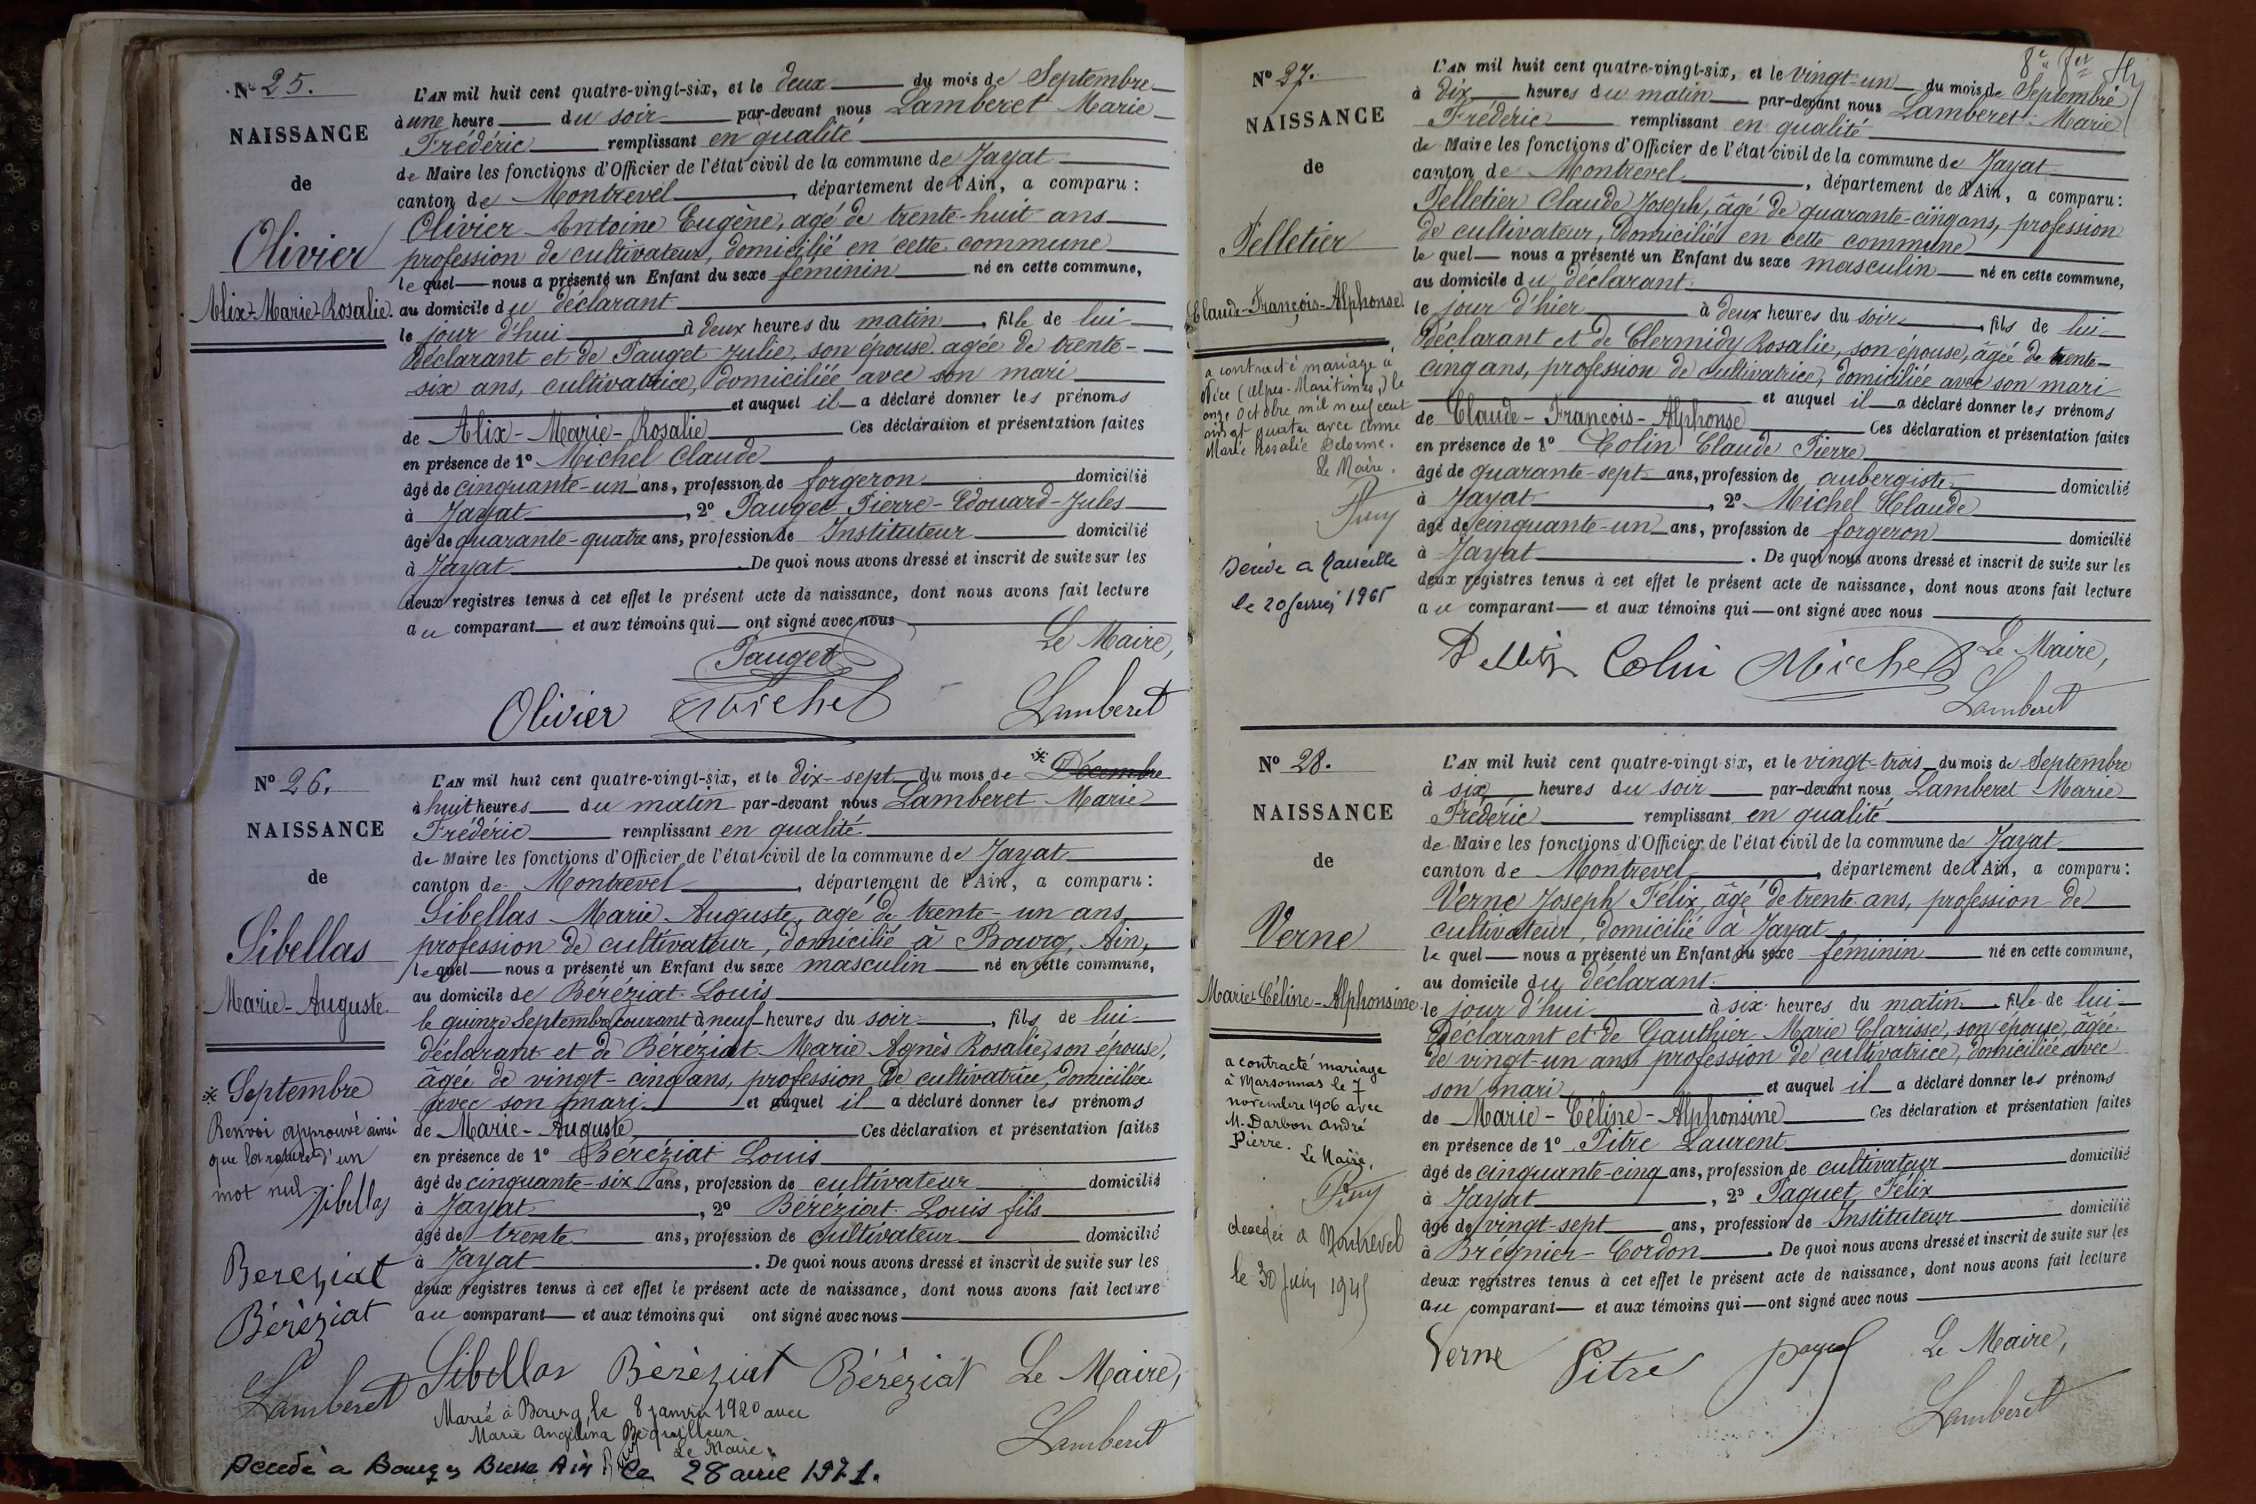 N° 25.
NAISSANCE
de
Olivier
Alix-Marie-Rosalie.
L'AN mil huit cent quatre-vingt-six, et le deux du mois de Septembre
à une heure du soir par-devant nous Lamberet Marie
Frédéric remplissant en qualité
de Maire les fonctions d'Officier de l'état civil de la commune de Jayat
canton de Montrevel, département de l'Ain, a comparu:
Olivier Antoine Eugène, agé de trente-huit ans
profession de cultivateur, domicilié en cette commune
lequel nous a présenté un Enfant du sexe féminin né en cette commune,
au domicile du déclarant
le jour d'hui à deux heures du matin, fille de lui
déclarant et de Pauget Julie, son épouse agée de trente-
six ans, cultivatrice, domiciliée avec son mari
et auquel il a déclaré donner les prénoms
de Alix-Marie-Rosalie Ces déclaration et présentation faites
en présence de 1° Michel Claude
âgé de cinquante-un ans, profession de forgeron domicilié
à Jayat, 2° Pauget Pierre-Edouard-Jules
âgé de quarante-quatre ans, profession de Instituteur domicilié
à Jayat. De quoi nous avons dressé et inscrit de suite sur les
deux registres tenus à cet effet le présent acte de naissance, dont nous avons fait lecture
au comparant et aux témoins qui ont signé avec nous
Le Maire,
Pauget
Olivier Michel Lamberet
N° 26.
NAISSANCE
de
Sibellas
Marie-Auguste.
※ Septembre
Renvoi approuvé ainsi
que la rature d'un
mot nul
Sibellas
Bereziat
Béréziat
Lamberet
L'AN mil huit cent quatre-vingt-six, et le dix-sept du mois de ※ Décembre
à huit heures du matin par-devant nous Lamberet Marie
Frédéric remplissant en qualité
de Maire les fonctions d'Officier de l'état civil de la commune de Jayat
canton de Montrevel, département de l'Ain, a comparu:
Sibellas Marie Auguste, agé de trente-un ans,
profession de cultivateur, domicilié à Bourg, Ain,
lequel nous a présenté un Enfant du sexe masculin né en cette commune,
au domicile de Béréziat Louis
le quinze Septembre courant à neuf heures du soir, fils de lui
déclarant et de Béréziat Marie Agnès Rosalie, son épouse,
âgée de vingt-cinq ans, profession de cultivatrice, domiciliée
avec son mari et auquel il a déclaré donner les prénoms
de Marie-Auguste Ces déclaration et présentation faites
en présence de 1° Béréziat Louis
âgé de cinquante-six ans, profession de cultivateur domicilié
à Jayat, 2° Béréziat Louis fils
âgé de trente ans, profession de cultivateur domicilié
à Jayat. De quoi nous avons dressé et inscrit de suite sur les
deux registres tenus à cet effet le présent acte de naissance, dont nous avons fait lecture
au comparant et aux témoins qui ont signé avec nous
Sibellas Béréziat Béréziat Le Maire,
Lamberet
Marié à Bourg, le 8 janvier 1920 avec
Marie Angélina
Le Maire,
Décédé a Bourg en Bresse Ain le 28 avril 1971.
N° 27.
NAISSANCE
de
Pelletier
Claude-François-Alphonse.
a contracté mariage à
Nice (Alpes-Maritimes,) le
onze Octobre mil neuf cent
vingt quatre avec Anne
Marie Rosalie Delorme.
Le Maire.
Décédé a Marseille
le 20 février 1965
L'AN mil huit cent quatre-vingt-six, et le vingt-un du mois de Septembre
à dix heures du matin par-devant nous Lamberet Marie
Frédéric remplissant en qualité
de Maire les fonctions d'Officier de l'état civil de la commune de Jayat
canton de Montrevel, département de l'Ain, a comparu:
Pelletier Claude Joseph, âgé de quarante-cinq ans, profession
de cultivateur, domicilié en cette commune
lequel nous a présenté un Enfant du sexe masculin né en cette commune,
au domicile du déclarant
le jour d'hier à deux heures du soir, fils de lui
déclarant et de Clermidy Rosalie, son épouse, âgée de trente-
cinq ans, profession de cultivatrice, domiciliée avec son mari
et auquel il a déclaré donner les prénoms
de Claude-François-Alphonse Ces déclaration et présentation faites
en présence de 1° Colin Claude Pierre
âgé de quarante-sept ans, profession de aubergiste domicilié
à Jayat, 2° Michel Claude
âgé de cinquante-un ans, profession de forgeron domicilié
à Jayat. De quoi nous avons dressé et inscrit de suite sur les
deux registres tenus à cet effet le présent acte de naissance, dont nous avons fait lecture
au comparant et aux témoins qui ont signé avec nous
Colin Michel Le Maire,
Lamberet
N° 28.
NAISSANCE
de
Verne
Marie-Céline-Alphonsine
a contracté mariage
à Marsonnas le 7
novembre 1906 avec
M. Darbon André
Pierre.
Le Maire,
décédée a Montrevel
le 30 Juin
L'AN mil huit cent quatre-vingt six, et le vingt-trois du mois de Septembre
à six heures du soir par-devant nous Lamberet Marie
Frédéric remplissant en qualité
de Maire les fonctions d'Officier de l'état civil de la commune de Jayat
canton de Montrevel, département de l'Ain, a comparu:
Verne Joseph Félix, âgé de trente ans, profession de
cultivateur, domicilié à Jayat
lequel nous a présenté un Enfant du sexe féminin né en cette commune,
au domicile du déclarant
le jour d'hui à six heures du matin fille de lui
déclarant et de Gauthier Marie Clarisse, son épouse, âgée
de vingt-un ans, profession de cultivatrice, domiciliée avec
son mari et auquel il a déclaré donner les prénoms
de Marie-Céline-Alphonsine Ces déclaration et présentation faites
en présence de 1° Pitre Laurent
âgé de cinquante-cinq ans, profession de cultivateur domicilié
à Jayat, 2° Paquet Félix
âgé de vingt-sept ans, profession de Instituteur domicilié
à Brégnier-Cordon. De quoi nous avons dressé et inscrit de suite sur les
deux registres tenus à cet effet le présent acte de naissance, dont nous avons fait lecture
au comparant et aux témoins qui ont signé avec nous
Verne Pitre Le Maire,
Lamberet